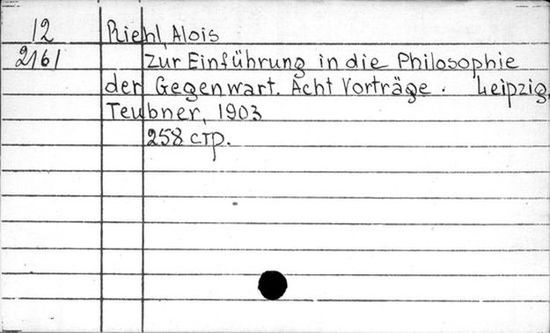 12 Riehl, Alois
2161 Zur Einführung in die Philosophie
der Gegenwart. Acht Vorträge. Leipzig,
Teubner, 1903
258 стр.